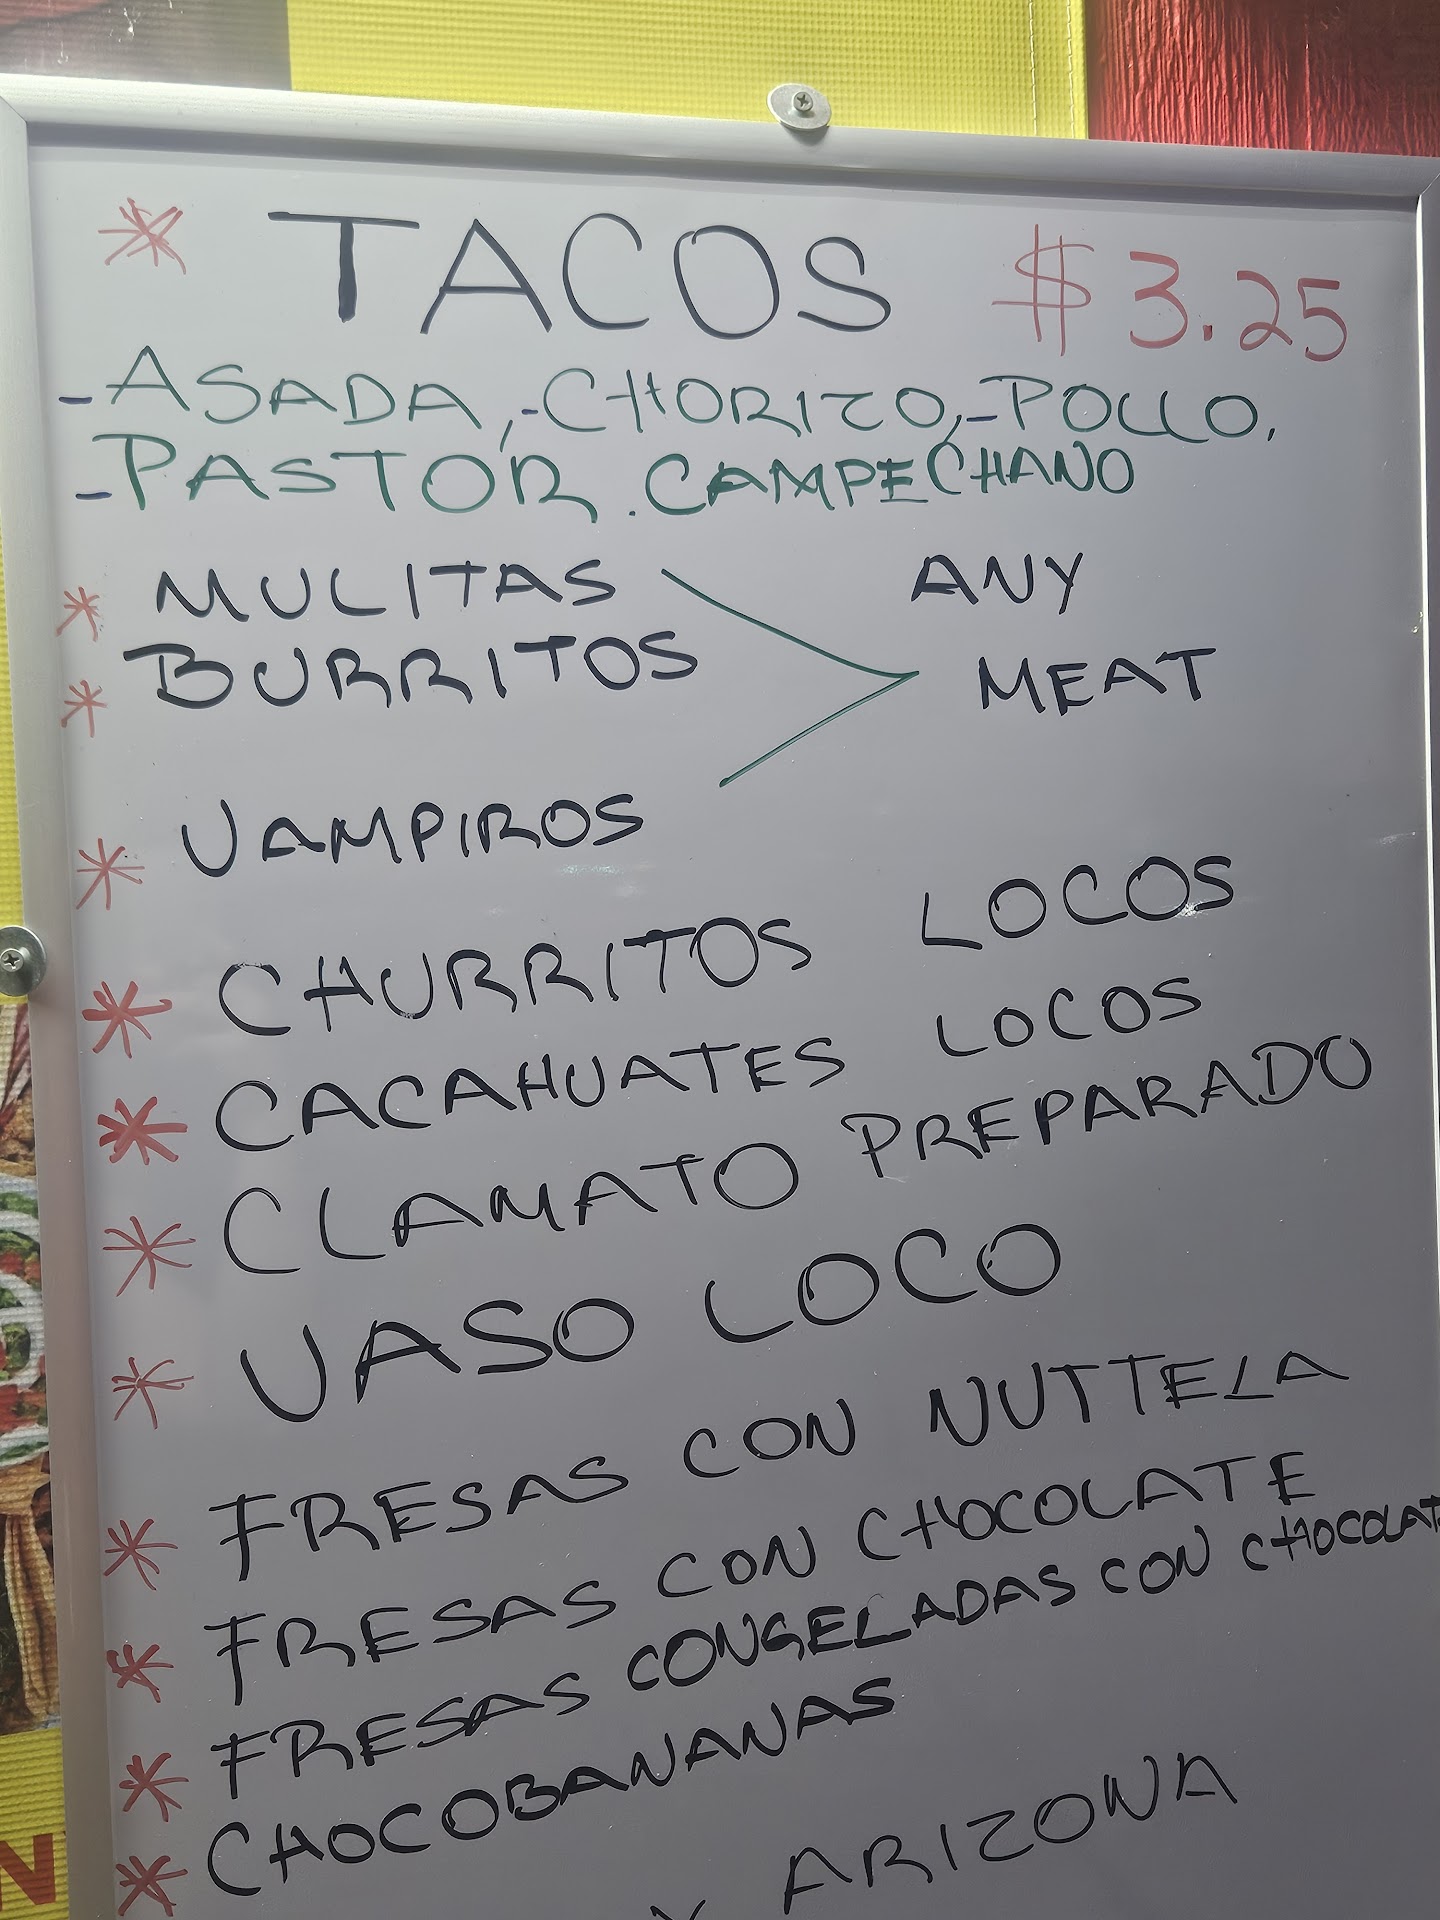 * TACOS $3.25
-ASADA, -CHORIZO, -POLLO.
-PASTOR. CAMPECHANO
* MULITAS ANY
* BURRITOS MEAT
* VAMPIROS
* CHURRITOS LOCOS
* CACAHUATES LOCOS
* CLAMATO PREPARADO
* VASO LOCO
* FRESAS CON NUTTELA
* FRESAS CON CHOCOLATE
* FRESAS CONGELADAS CON CHOCOLAT
* CHOCOBANANAS
ARIZONA